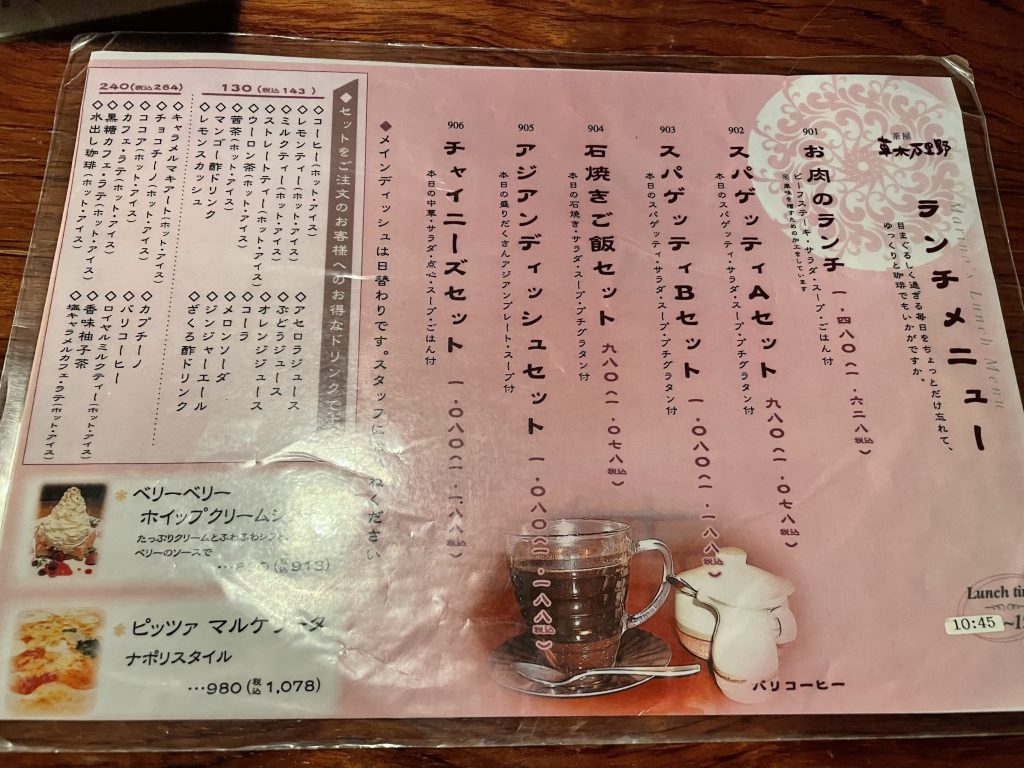 茶屋
草木万里野
ランチメニュー
Marino's Lunch Menu
目まぐるしく過ぎる毎日をちょっとだけ忘れて、
ゆっくりと珈琲でもいかがですか。
901
お肉のランチ 一、四八〇(一、六二八税込)
ビーフステーキ・サラダ・スープ・ごはん付
※風味を増すための加工をしています
902
スパゲッティAセット 九八〇(一、〇七八税込)
本日のスパゲッティ・サラダ・スープ・プチグラタン付
903
スパゲッティBセット 一、〇八〇(一、一八八税込)
本日のスパゲッティ・サラダ・スープ・プチグラタン付
904
石焼きご飯セット 九八〇(一、〇七八税込)
本日の石焼き・サラダ・スープ・プチグラタン付
905
アジアンディッシュセット 一、〇八〇(一、一八八税込)
本日の盛りだくさんアジアンプレート・スープ付
906
チャイニーズセット 一、〇八〇(一、一八八税込)
本日の中華・サラダ・点心・スープ・ごはん付
◆メインディッシュは日替わりです。スタッフに
ねください
◆セットをご注文のお客様へのお得なドリンクで
130(税込 143)
◇コーヒー(ホット・アイス)
◇レモンティー(ホット・アイス)
◇ミルクティー(ホット・アイス)
◇ストレートティー(ホット・アイス)
◇ウーロン茶(ホット・アイス)
◇苦茶(ホット・アイス)
◇マンゴー酢ドリンク
◇レモンスカッシュ
◇アセロラジュース
◇ぶどうジュース
◇オレンジジュース
◇コーラ
◇メロンソーダ
◇ジンジャーエール
◇ざくろ酢ドリンク
240(税込 264)
◇キャラメルマキアート(ホット・アイス)
◇チョコチーノ(ホット・アイス)
◇ココア(ホット・アイス)
◇カフェ・ラテ(ホット・アイス)
◇黒糖カフェ・ラテ(ホット・アイス)
◇水出し珈琲(ホット・アイス)
◇カプチーノ
◇バリコーヒー
◇ロイヤルミルクティー(ホット・アイス)
◇香味柚子茶
◇塩キャラメルカフェ・ラテ(ホット・アイス)
ベリーベリー
ホイップクリーム
たっぷりクリームとふわふわシフォン
ベリーのソースで
(税込913)
ピッツァ マルゲリータ
ナポリスタイル
…980(税込1,078)
バリコーヒー
Lunch
10:45~